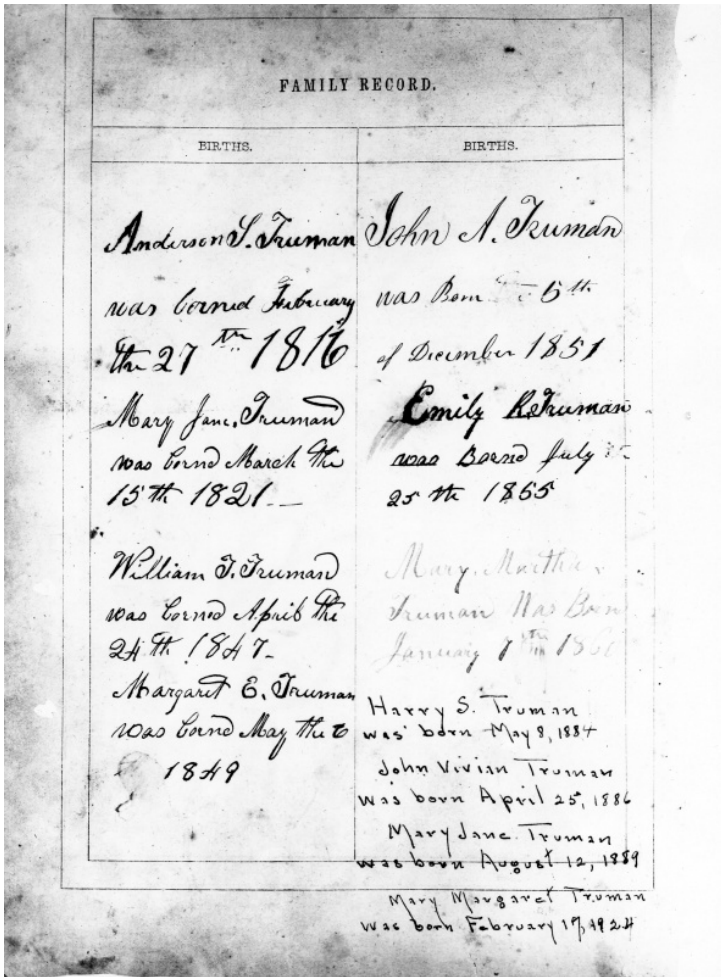 FAMILY RECORD.
BIRTHS.
Anderson S. Truman
was borned February
the 27th 1816
Mary Jane. Truman
was bornd March the
15th 1821 —
William T. Truman
was borned April the
24th 1847-
Margaret E. Truman
was bornd May the
1849
BIRTHS.
John A. Truman
was Born 5th
of December 1851
Emily R. Truman
was Bornd July
25th 1855
Mary. Martha.
Truman Was Born
January
Harry S. Truman
was born May 8, 1884
John Vivian Truman
was born April 25, 1886
Mary Jane Truman
was born August 12, 1889
Mary Margaret Truman
was born February 17, 1924